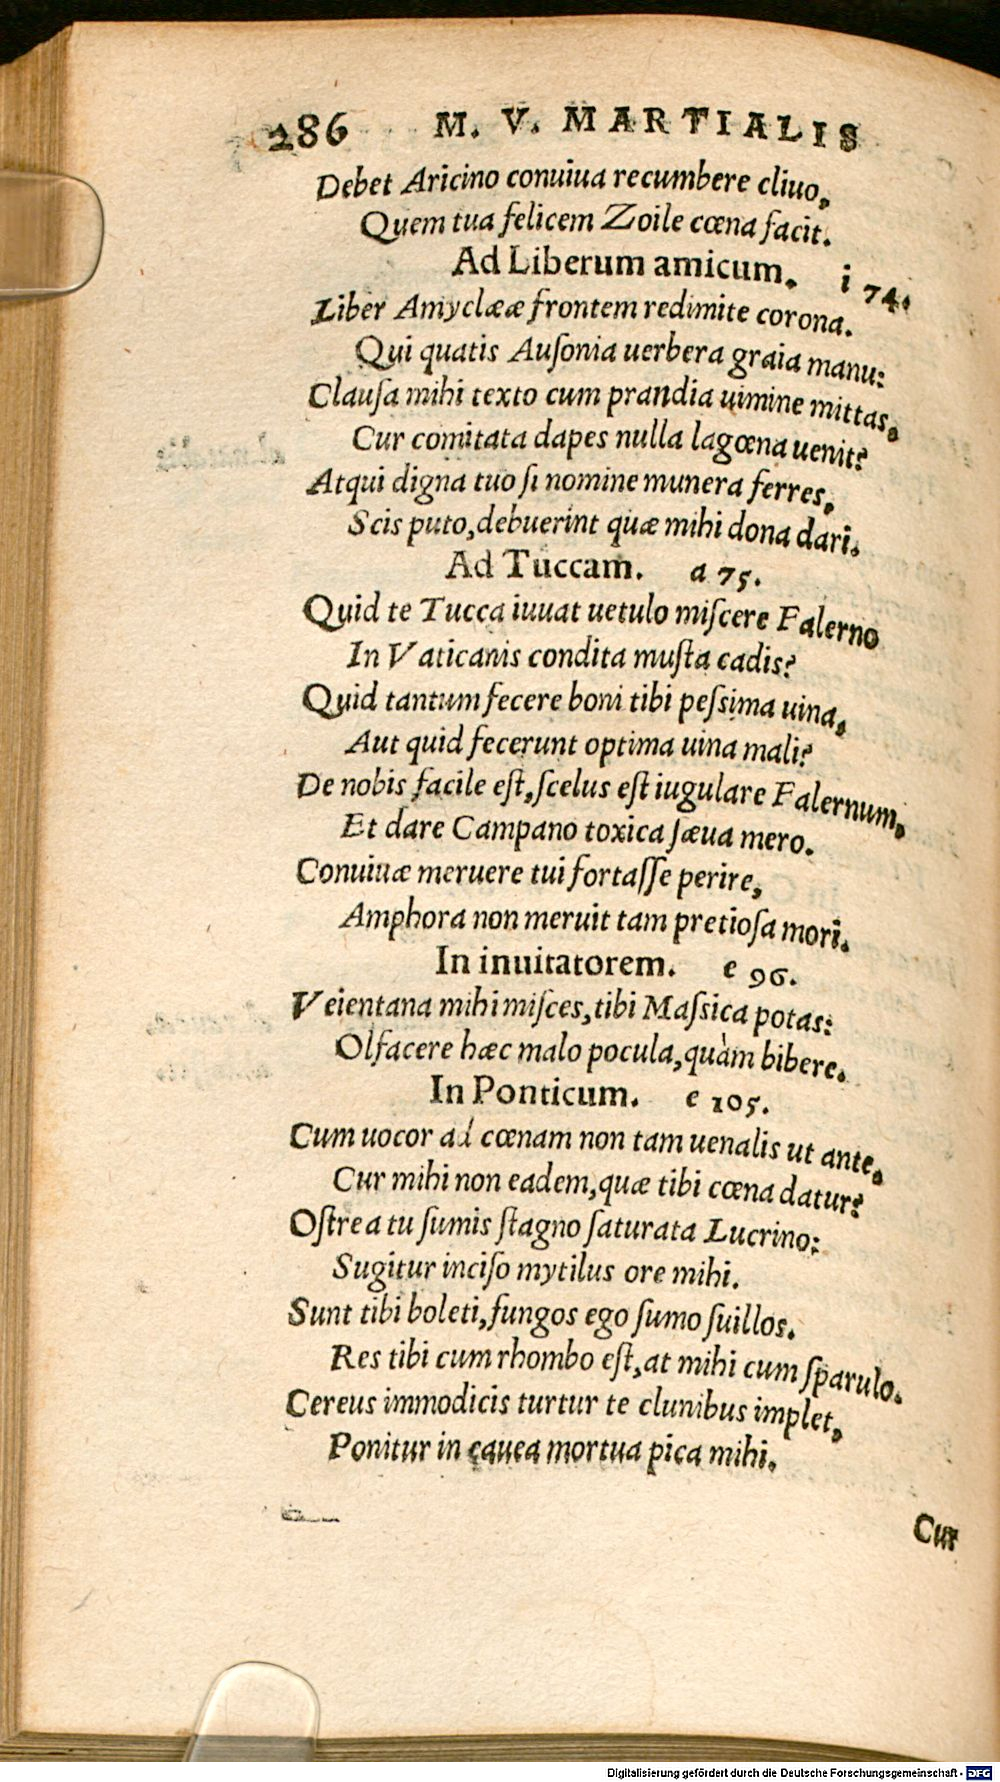 286 M. V. MARTIALIS
Debet Aricino conuiua recumbere cliuo,
Quem tua felicem Zoile cœna facit.
Ad Liberum amicum. i 74.
Liber Amyclææ frontem redimite corona.
Qui quatis Auſonia uerbera graia manu:
Clauſa mihi texto cum prandia uimine mittas,
Cur comitata dapes nulla lagœna uenit?
Atqui digna tuo ſi nomine munera ferres,
Scis puto, debuerint quæ mihi dona dari.
Ad Tuccam. a 75.
Quid te Tucca iuuat uetulo miſcere Falerno
In Vaticanis condita muſta cadis?
Quid tantum fecere boni tibi peſsima uina,
Aut quid fecerunt optima uina mali?
De nobis facile eſt, ſcelus eſt iugulare Falernum,
Et dare Campano toxica ſæua mero.
Conuiuæ meruere tui fortaſſe perire,
Amphora non meruit tam pretioſa mori.
In inuitatorem. e 96.
Veientana mihi miſces, tibi Maſsica potas:
Olfacere hæc malo pocula, quàm bibere.
In Ponticum. e 105.
Cum uocor ad cœnam non tam uenalis ut ante,
Cur mihi non eadem, quæ tibi cœna datur?
Oſtrea tu ſumis ſtagno ſaturata Lucrino:
Sugitur inciſo mytilus ore mihi.
Sunt tibi boleti, fungos ego ſumo ſuillos.
Res tibi cum rhombo eſt, at mihi cum ſparulo.
Cereus immodicis turtur te clunibus implet,
Ponitur in cauea mortua pica mihi.
Cur
Digitalisierung gefördert durch die Deutsche Forschungsgemeinschaft - DFG